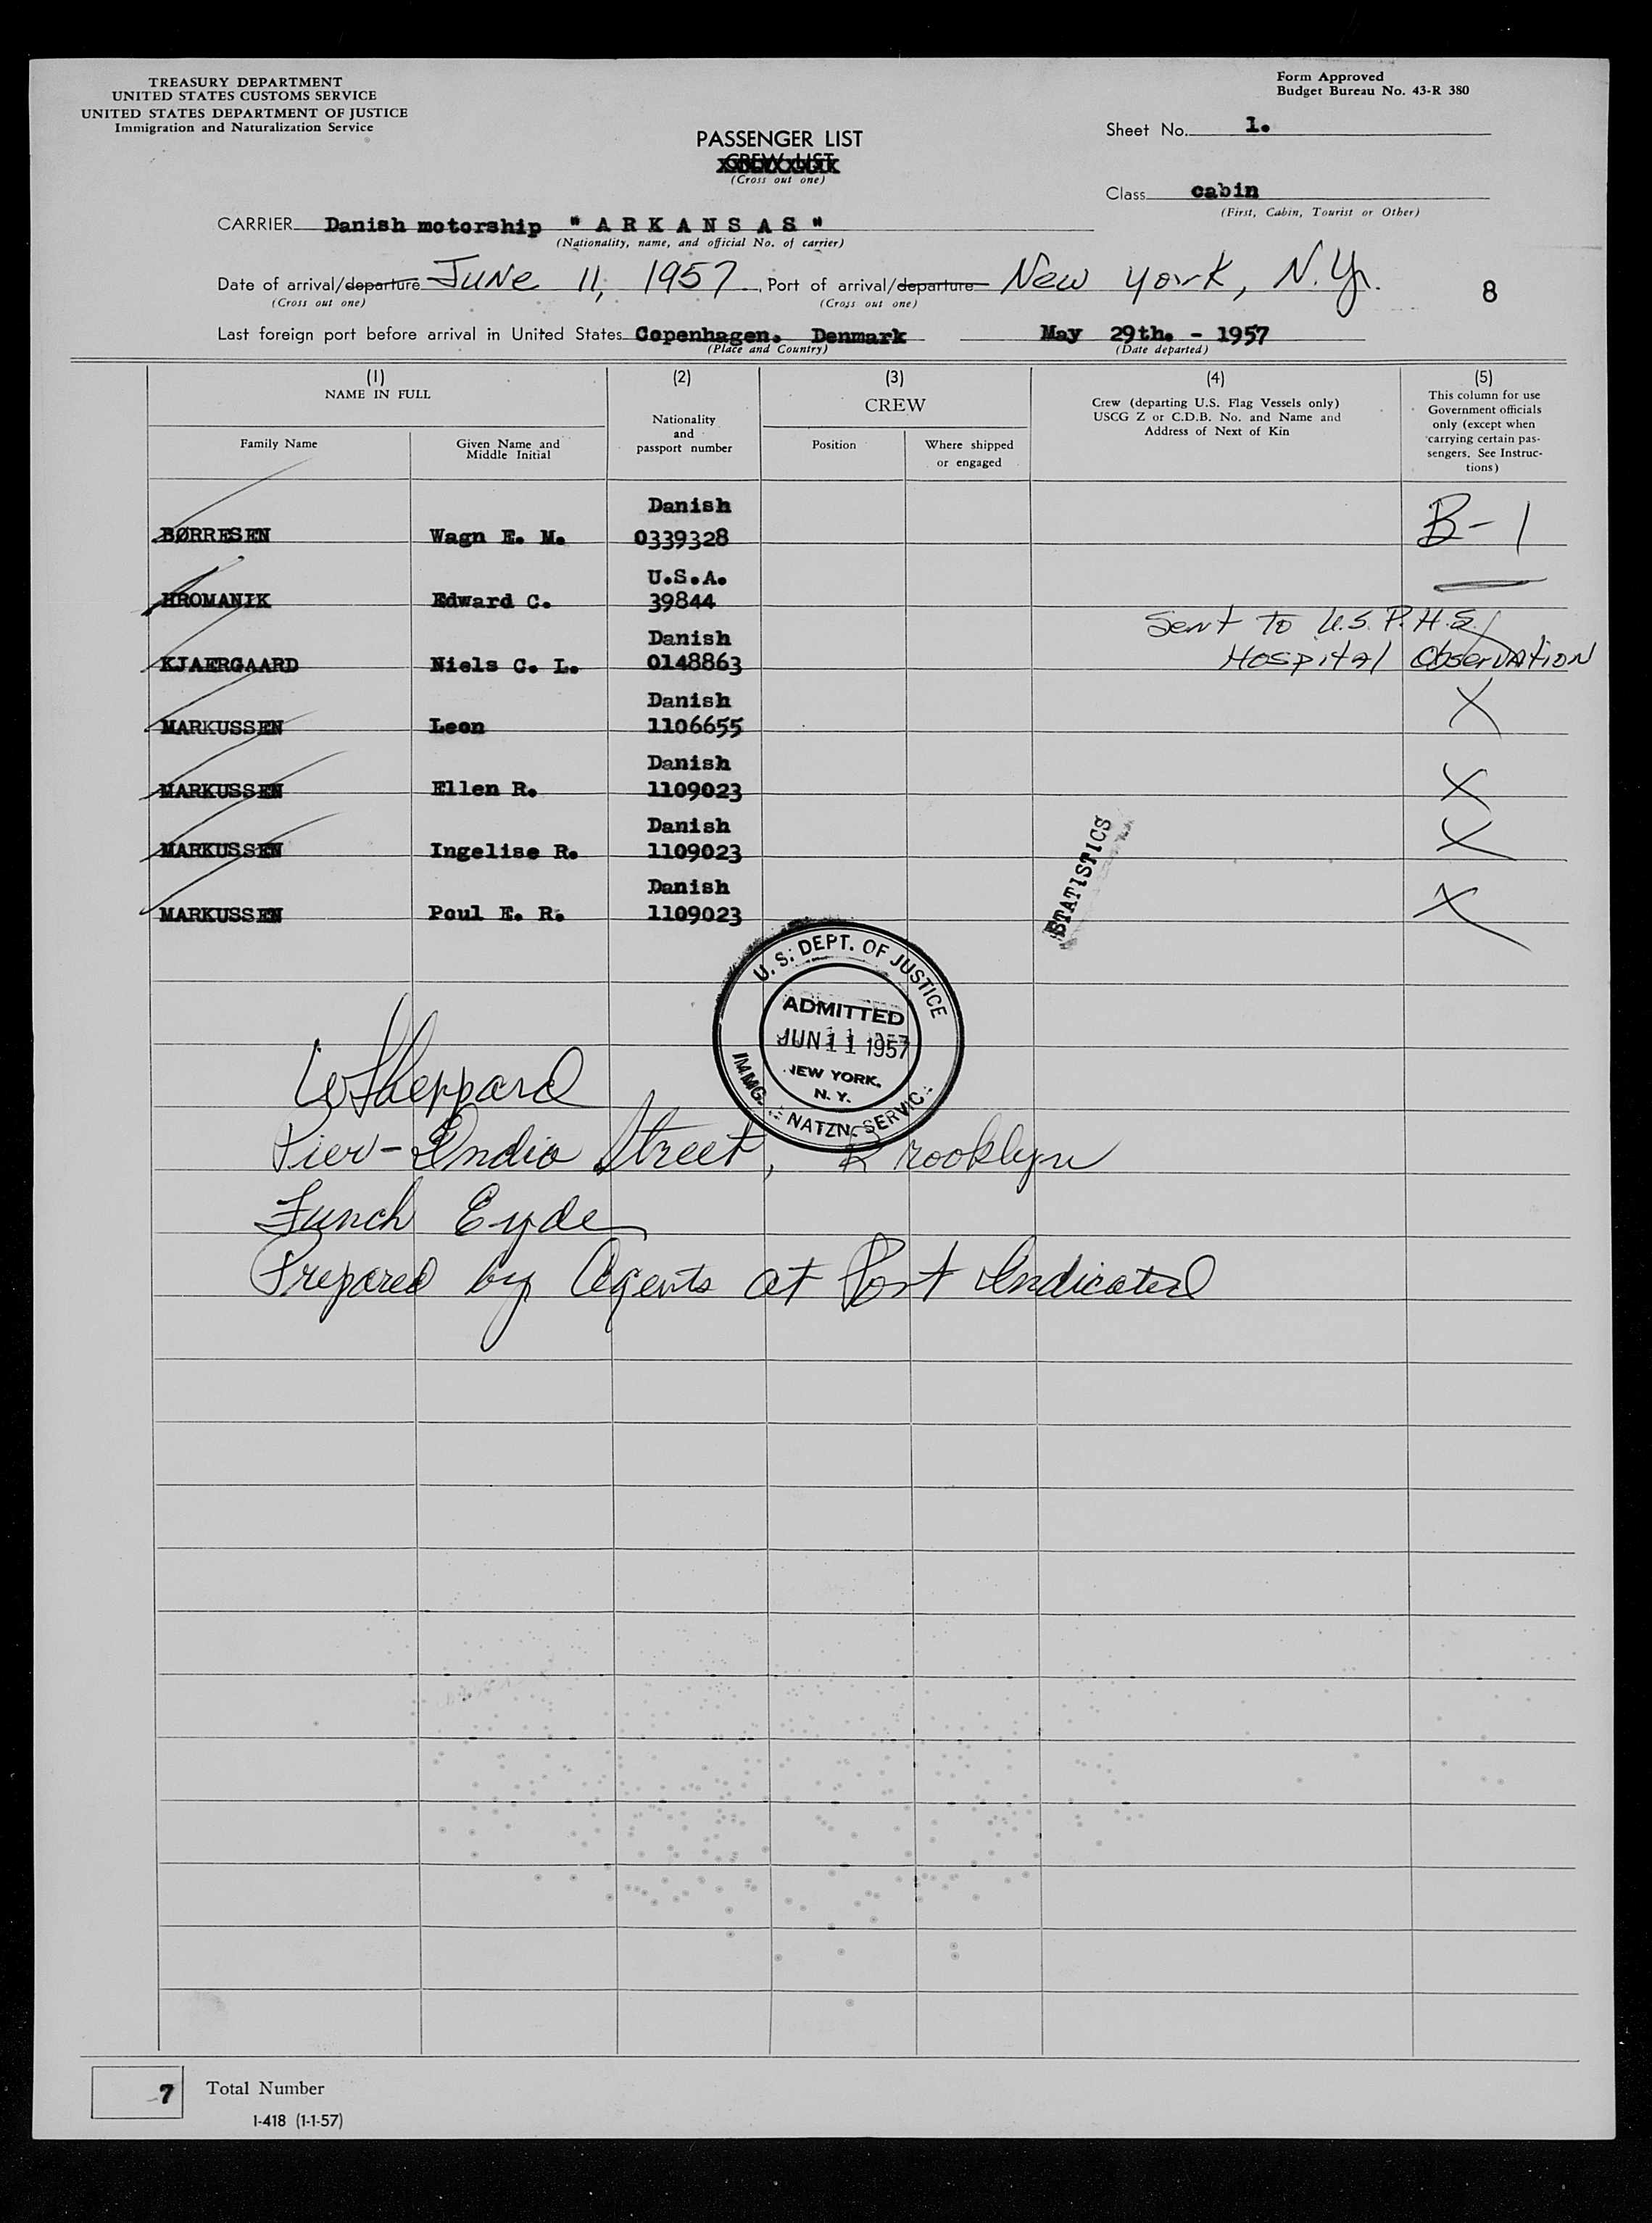 TREASURY DEPARTMENT
UNITED STATES CUSTOMS SERVICE
UNITED STATES DEPARTMENT OF JUSTICE
Immigration and Naturalization Service
Form Approved
Budget Bureau No. 43-R 380
PASSENGER LIST
CREW LIST
(Cross out one)
Sheet No. 1.
Class cabin
(First, Cabin, Tourist or Other)
CARRIER Danish motorship "ARKANSAS"
(Nationality, name, and official No. of carrier)
Date of arrival/departure June 11, 1957, Port of arrival/departure New York, N.Y.
(Cross out one) (Cross out one)
8
Last foreign port before arrival in United States Copenhagen. Denmark May 29th. - 1957
(Place and Country) (Date departed)
(1) (2) (3) (4) (5)
NAME IN FULL
Family Name
Given Name and
Middle Initial
Nationality
and
passport number
CREW
Position
Where shipped
or engaged
Crew (departing U.S. Flag Vessels only)
USCG Z or C.D.B. No. and Name and
Address of Next of Kin
This column for use
Government officials
only (except when
carrying certain pas-
sengers. See Instruc-
tions)
Danish
BØRRESEN Wagn E. M. 0339328 B-1
U.S.A.
HROMANIK Edward C. 39844 —
Sent to U.S.P.H.S.
Danish
KJAERGAARD Niels C. L. 0148863 Hospital Observation
Danish
MARKUSSEN Leon 1106655 X
Danish
MARKUSSEN Ellen R. 1109023 X
Danish
MARKUSSEN Ingelise R. 1109023 X
Danish
MARKUSSEN Poul E. R. 1109023 X
STATISTICS
U. S. DEPT. OF JUSTICE
ADMITTED
JUN 11 1957
NEW YORK,
N. Y.
IMMG. NATZN. SERVIC
W Sheppard
Pier-India Street, Brooklyn
Funch Eyde
Prepared by Agents at Port Indicated
7 Total Number
I-418 (1-1-57)